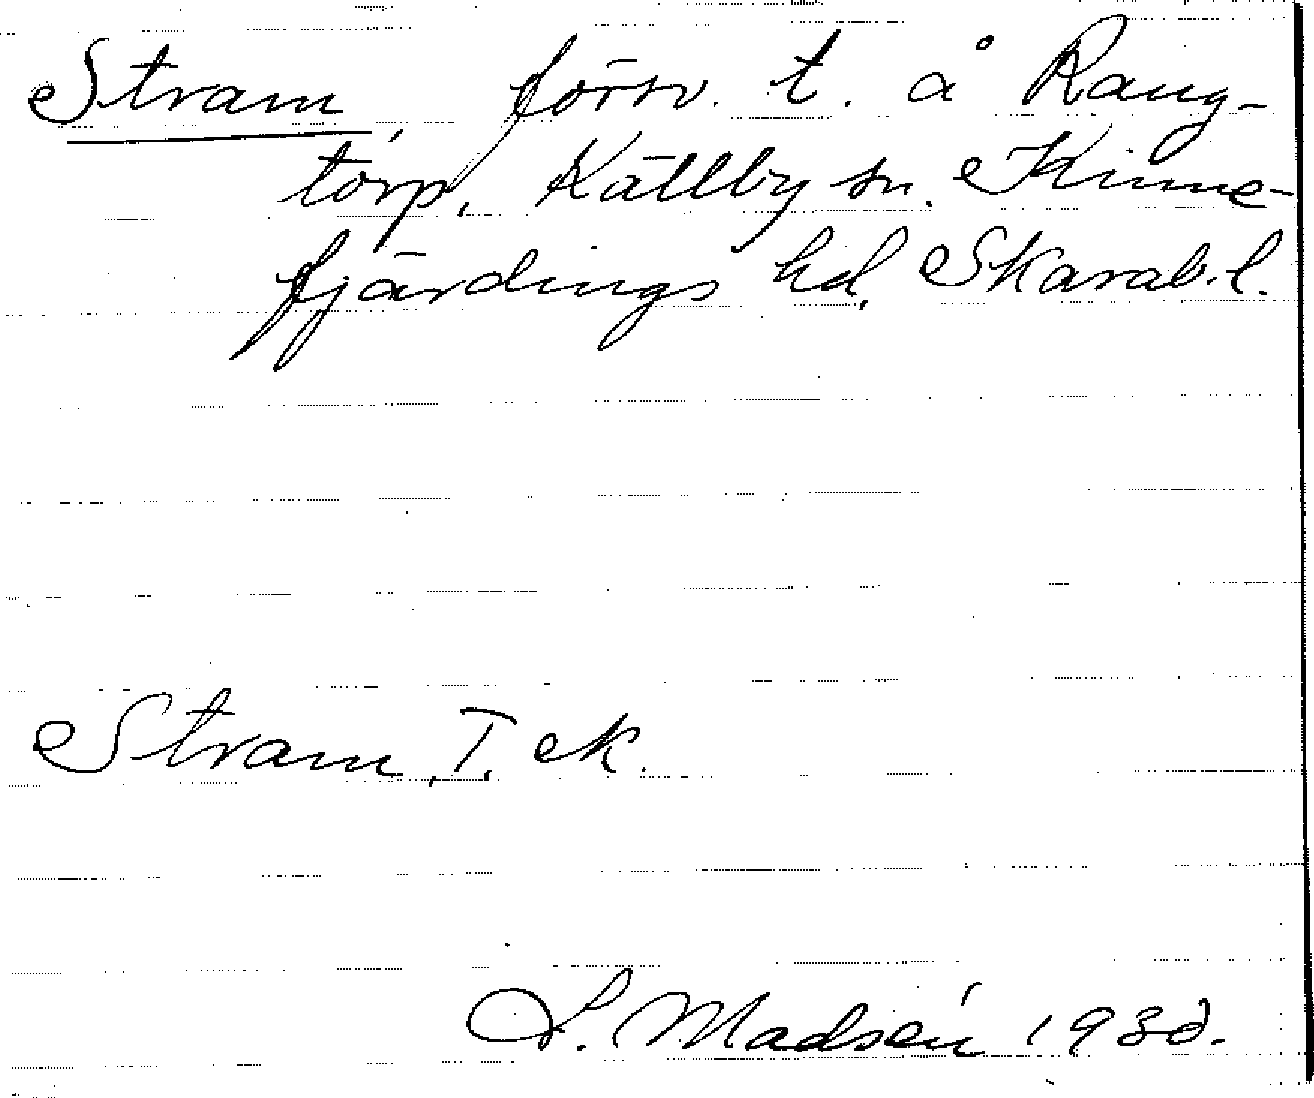 Stram, försv. t. å Rang-
torp, Källby sn. Kinne-
fjärdings hd, Skarab.l.
Stram, T. ek.
L. Madsén 1930.